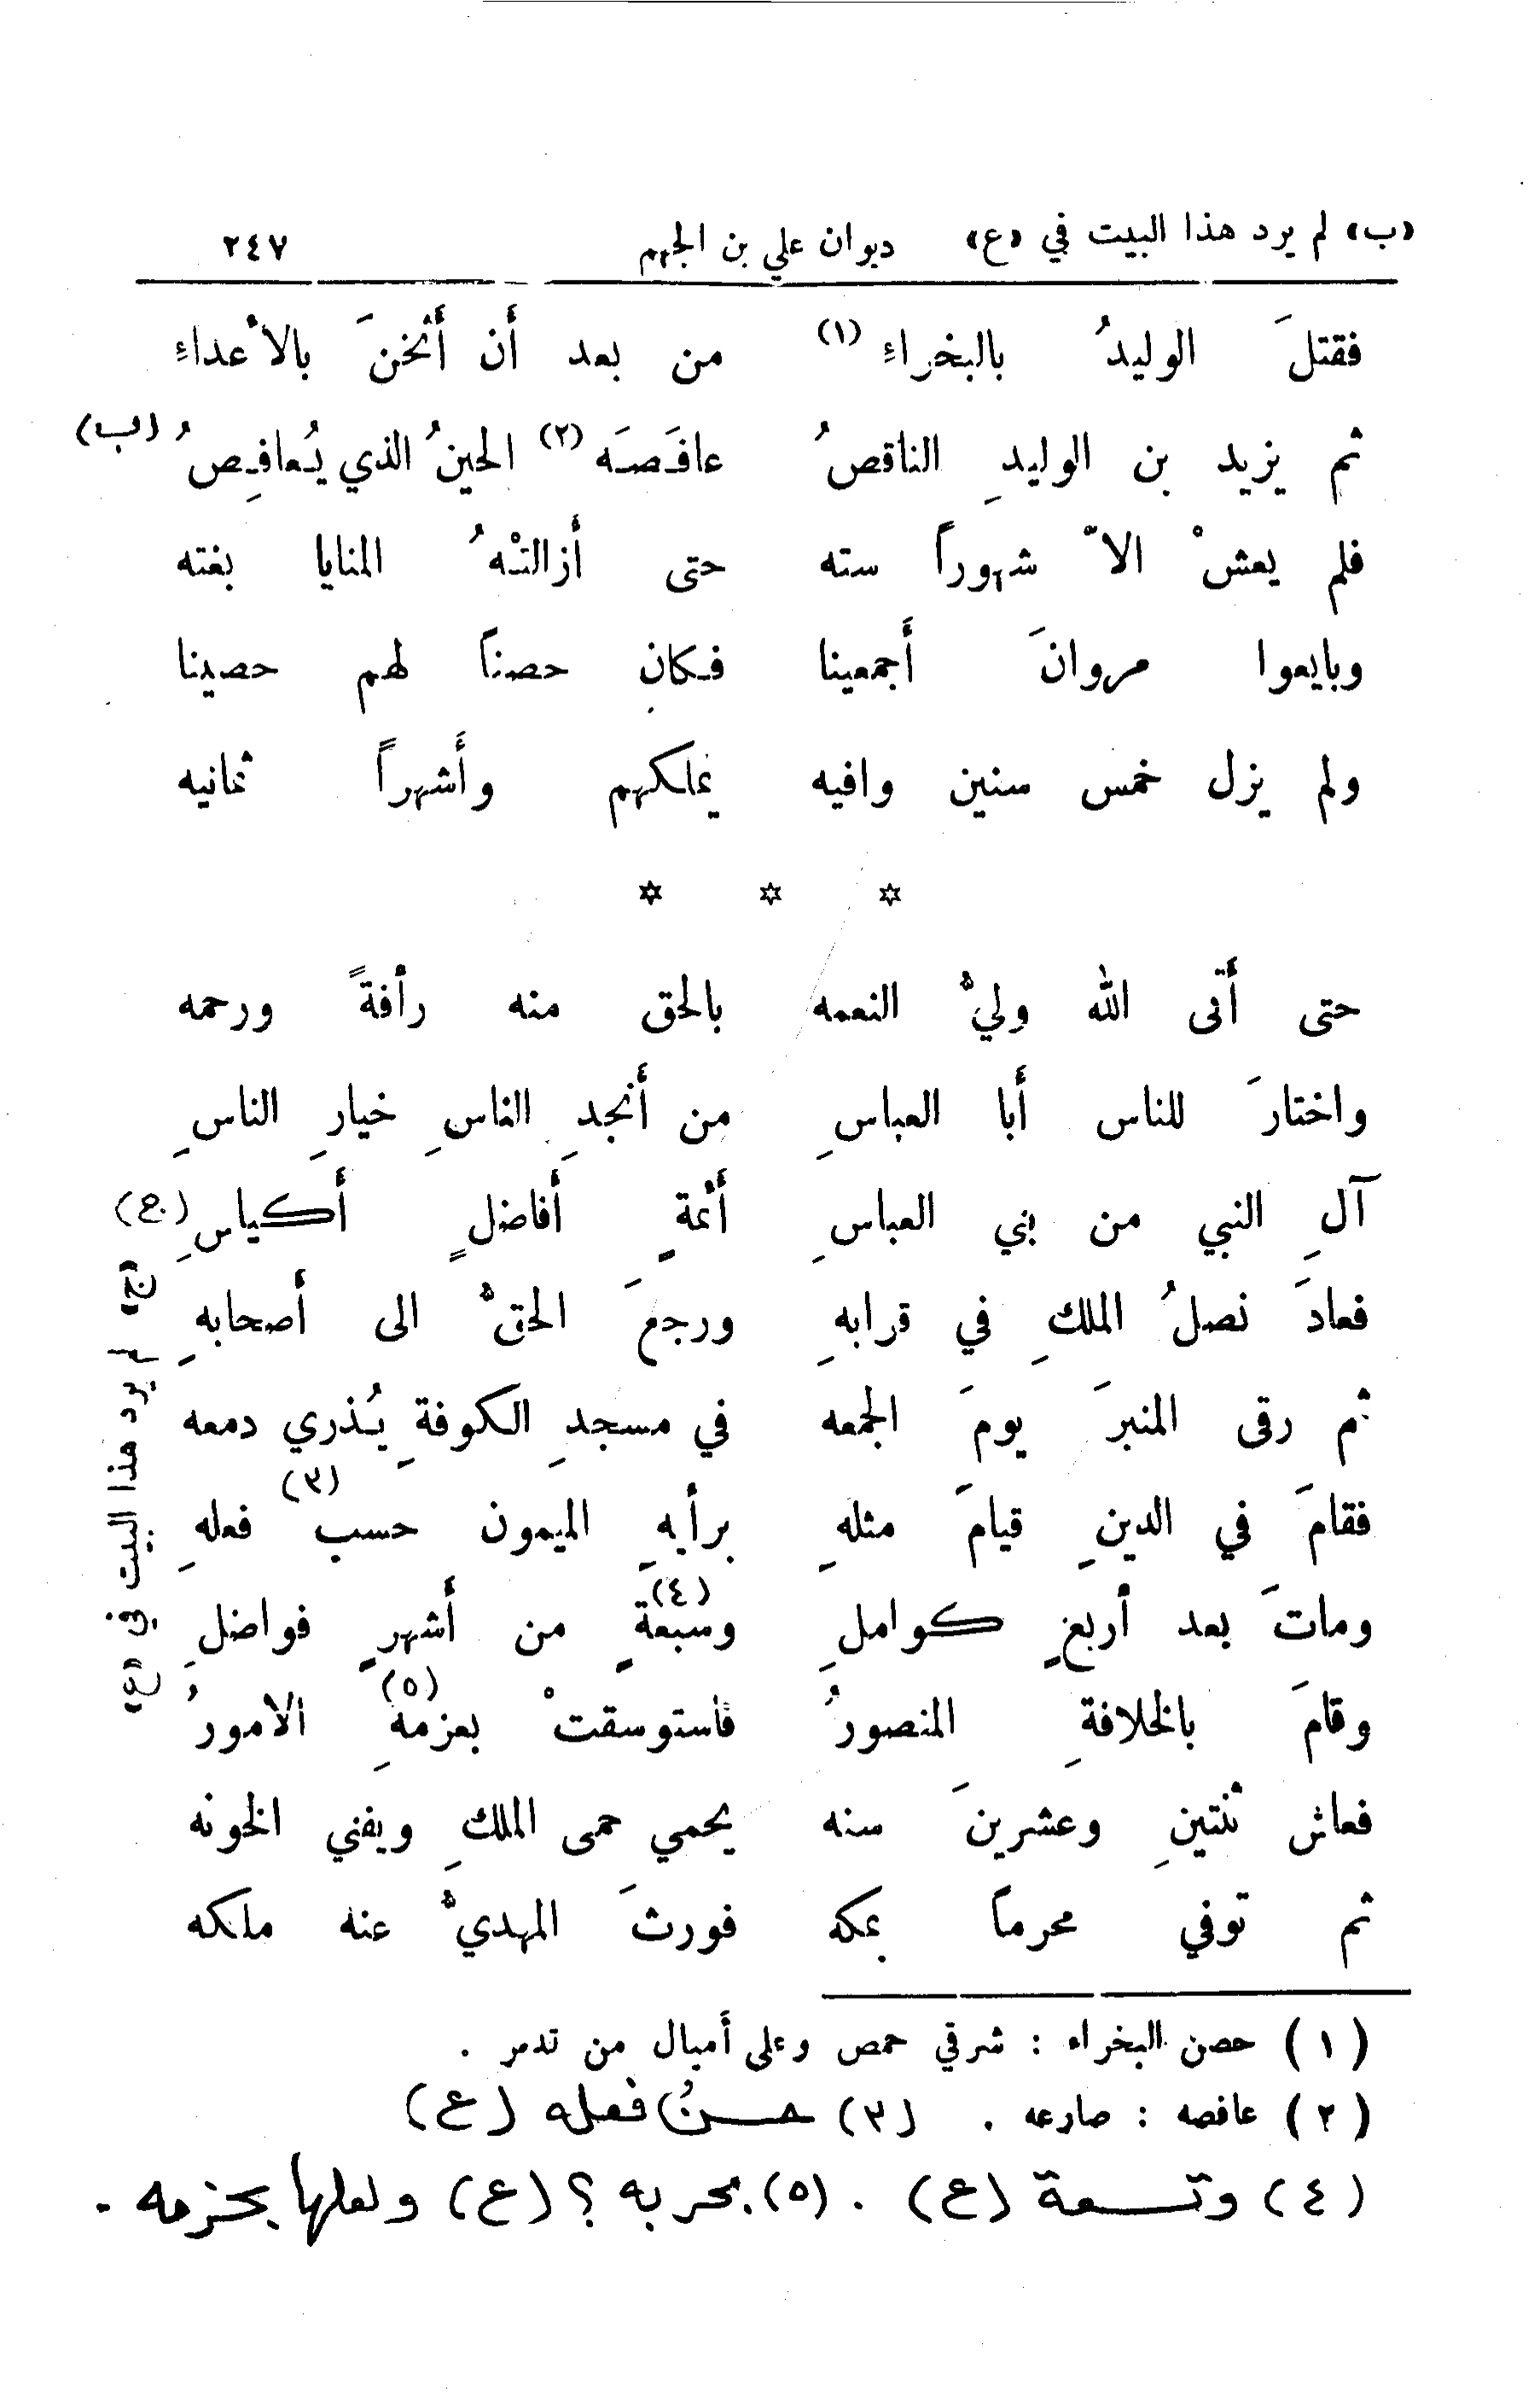 «ب» لم يرد هذا البيت في «ع» ديوان علي بن الجهم ٢٤٧
فقتلَ الوليدُ بالبخراءِ (١) من بعد أن أثخنَ بالأعداءِ
ثم يزيد بن الوليدِ الناقصُ عافَصَه (٢) الحينُ الذي يُعافِصُ (ب)
فلم يعشْ الاّ شهوراً سته حتى أزالتْهُ المنايا بغته
وبايعوا مروانَ أجمعينا فكان حصناً لهم حصينا
ولم يزل خمس سنين وافيه يملكهم وأشهراً ثمانيه
* * *
حتى أتى الله وليُّ النعمه بالحق منه رأفةً ورحمه
واختارَ للناس أبا العباسِ من أنجدِ الناسِ خيارِ الناسِ
آلِ النبي من بني العباسِ أئمةٍ أفاضلٍ أكياسِ (ج)
فعادَ نصلُ الملكِ في قرابهِ ورجعَ الحقُّ الى أصحابهِ
ثم رقى المنبرَ يومَ الجمعه في مسجدِ الكوفةِ يُذري دمعه
فقامَ في الدينِ قيامَ مثلهِ برأيهِ الميمون حسب (٣) فعلهِ
وماتَ بعد أربعٍ كواملِ وسبعةٍ (٤) من أشهرٍ فواضلِ
وقامَ بالخلافةِ المنصورُ فاستوسقتْ بعزمهِ (٥) الامورُ
فعاش ثنتينِ وعشرينَ سنه يحمي حمى الملكِ ويفني الخونه
ثم توفي محرماً بمكه فورثَ المهديُّ عنه ملكه
«ج» لم يرد هذا البيت في «ع»
(١) حصن البخراء : شرقي حمص وعلى أميال من تدمر .
(٢) عافصه : صارعه . (٣) حسنُ فعله (ع)
(٤) وتسعة (ع) . (٥) بحربه ؟ (ع) ولعلها بحزمه .